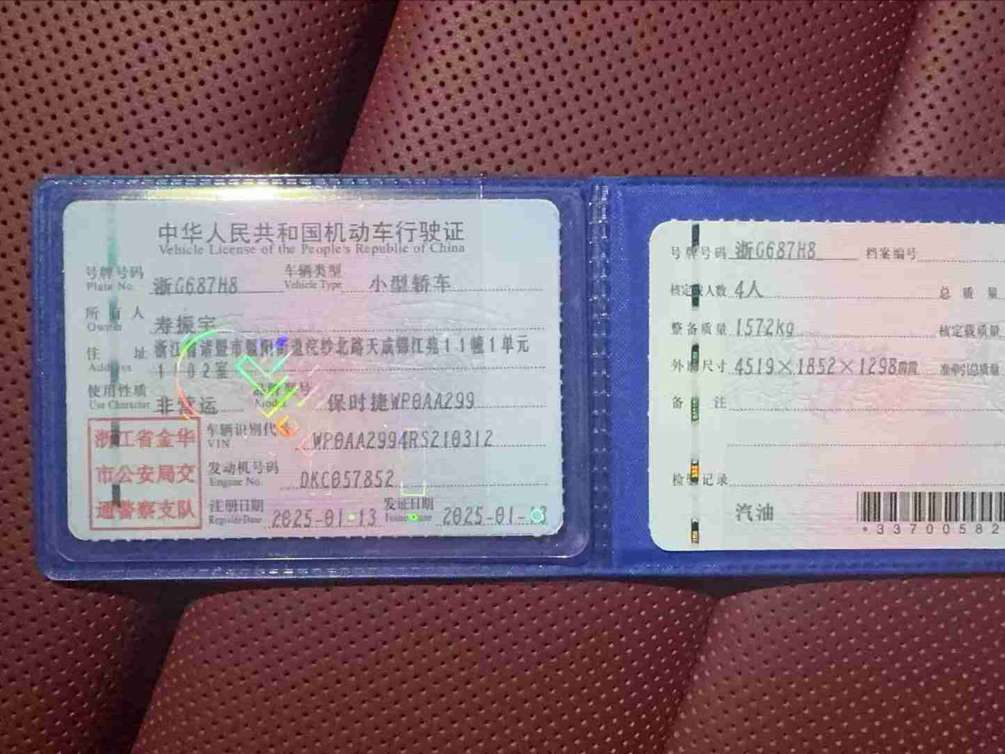 中华人民共和国机动车行驶证
Vehicle License of the People's Republic of China
号牌号码 浙G687H8 车辆类型 小型轿车
Plate No. Vehicle Type
所有人 寿振宇
Owner
住址 浙江省诸暨市暨阳街道浣纱北路天成锦江苑11幢1单元
Address 1102室
使用性质 非营运 品牌型号 保时捷WP0AA299
Use Character Model
浙江省金华
市公安局交
通警察支队
车辆识别代号 WP0AA2994RS210312
VIN
发动机号码 DKC057852
Engine No.
注册日期 2025-01-13 发证日期 2025-01-13
Register Date Issue Date
号牌号码 浙G687H8 档案编号
核定载人数 4人 总质量
整备质量 1572kg 核定载质量
外廓尺寸 4519×1852×1298mm 准牵引总质量
备注
检验记录
汽油
*33700582